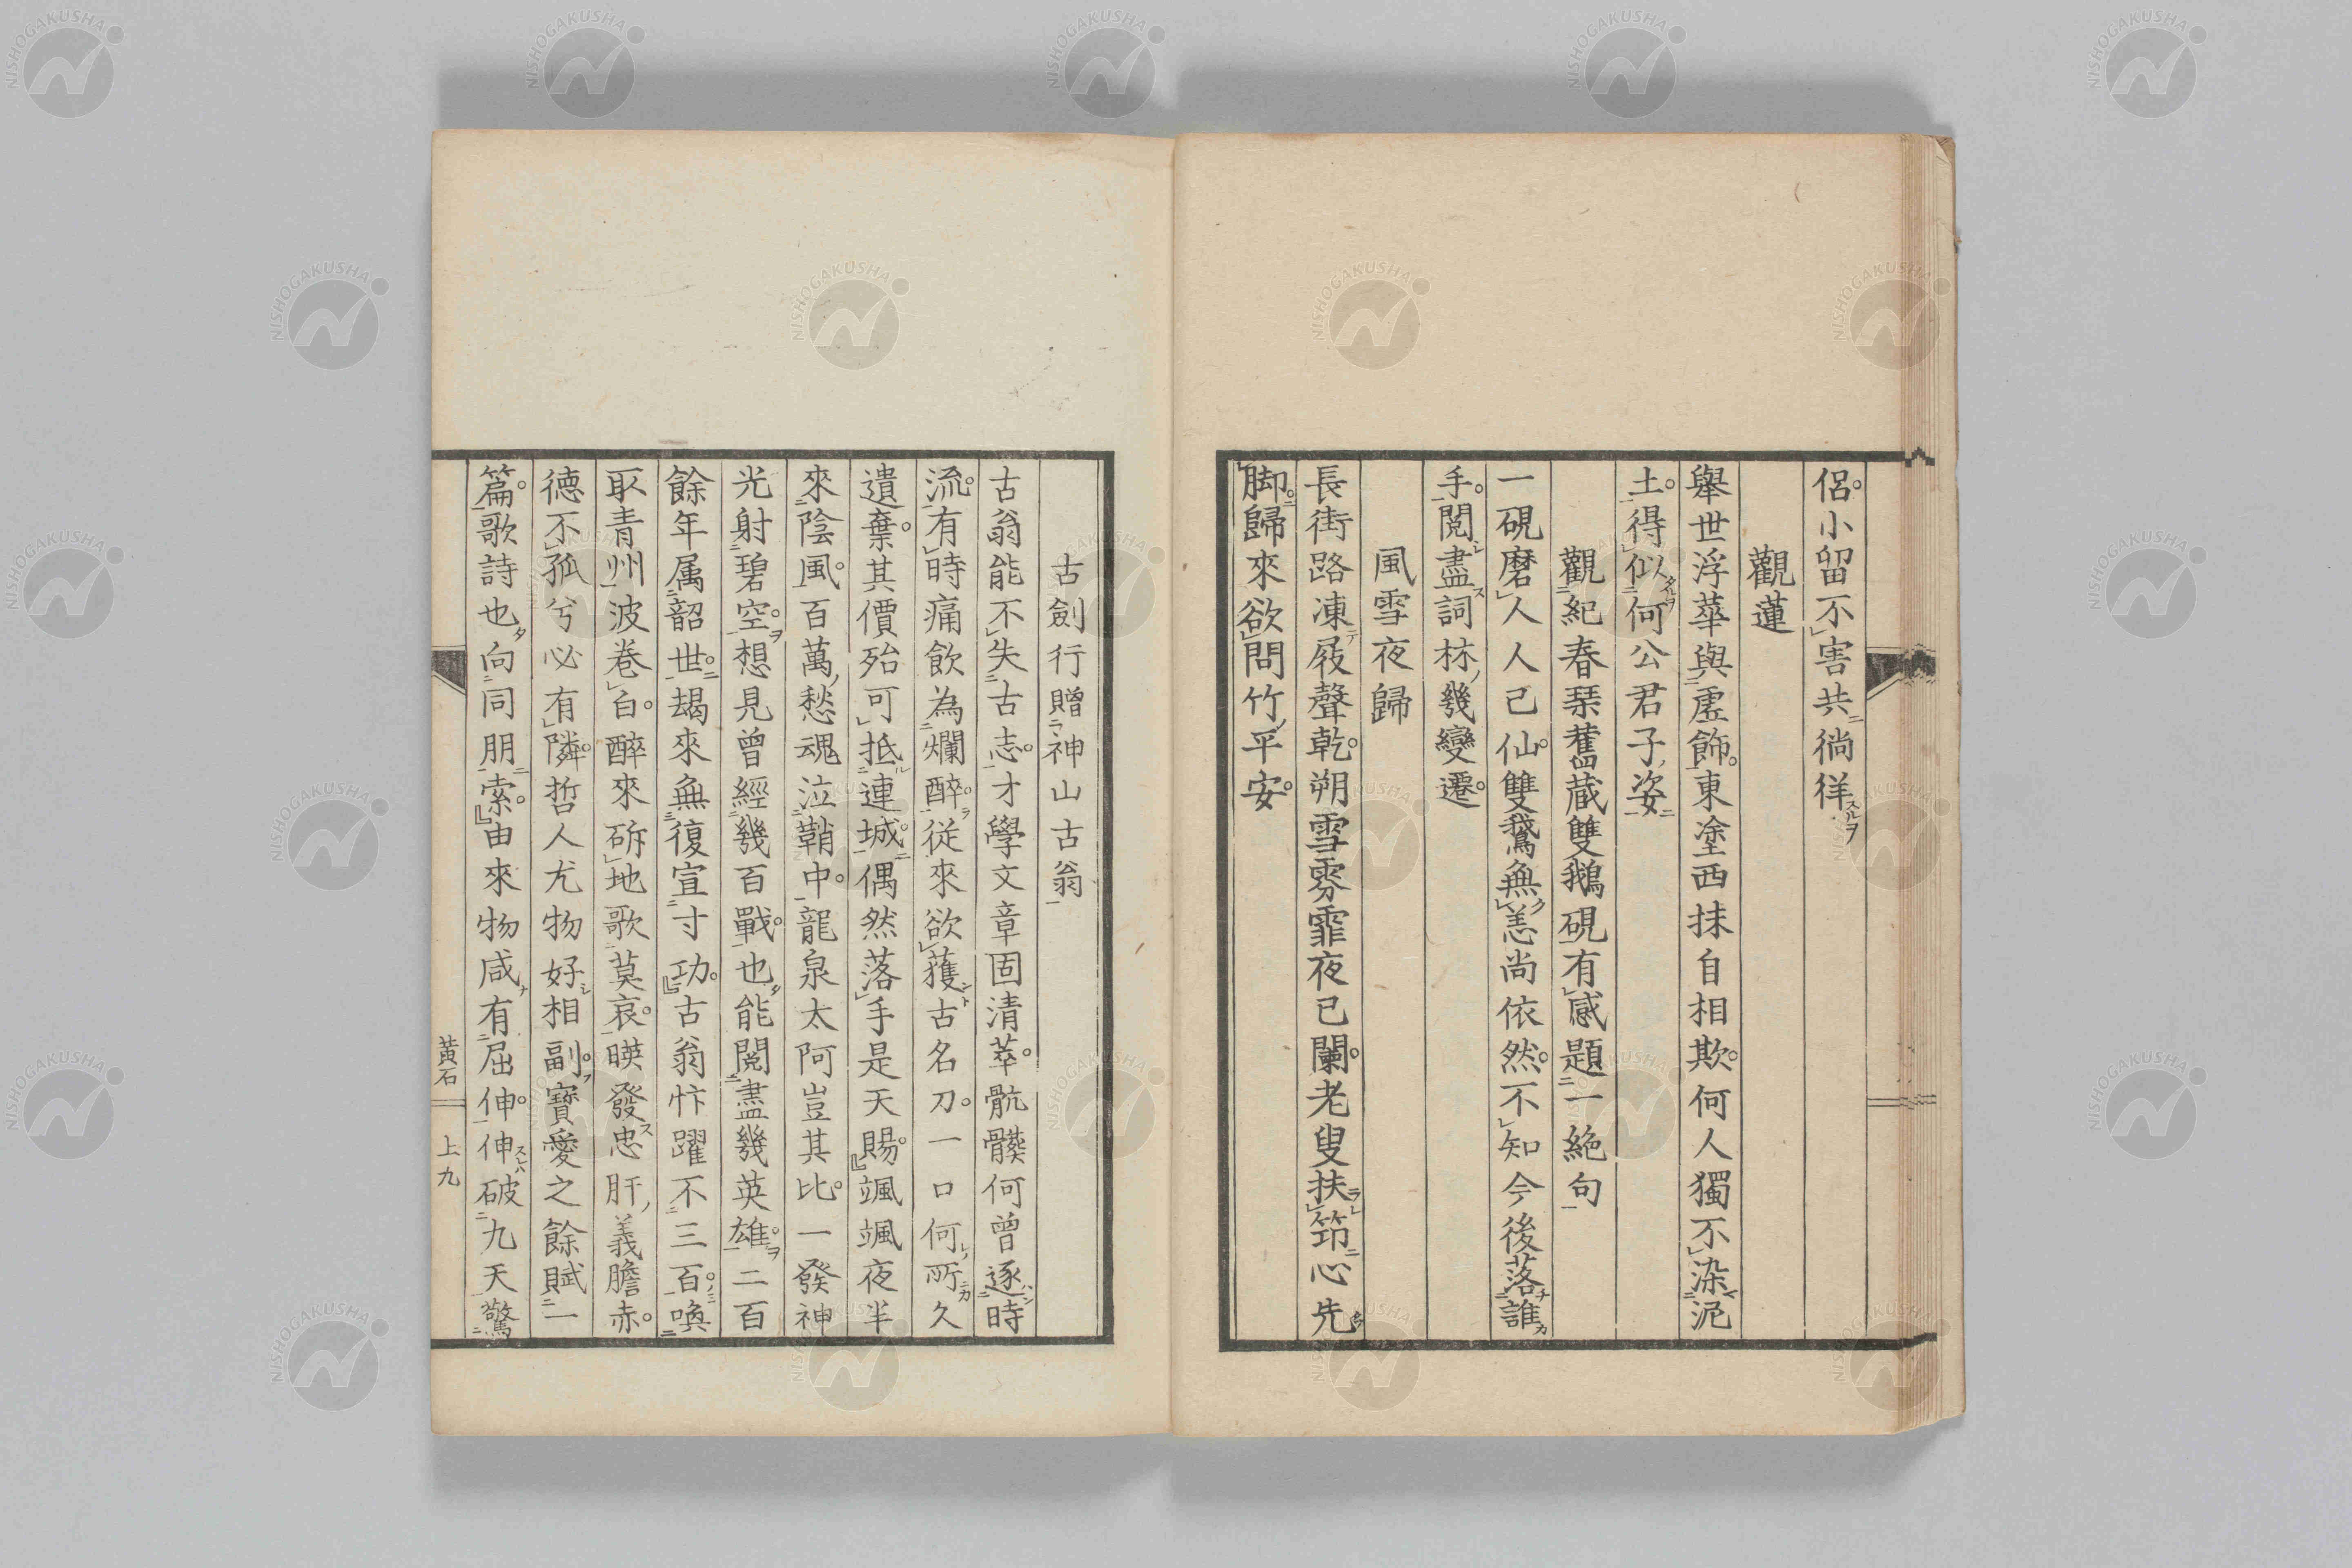 侶小留不害共徜徉
觀蓮
舉世浮華與虛飾東塗西抹自相欺何人獨不染泥
土得似何公君子姿
觀紀春琹舊蔵雙鵝硯有感題一絶句
一硯磨人人已仙雙鵝無恙尚依然不知今後落誰
手閲盡詞林幾變遷
風雪夜歸
長街路凍屐聲乾朔雪雰霏夜已闌老叟扶筇心先
脚歸來欲問竹平安
古劍行贈神山古翁
古翁能不失古志才學文章固清萃骯髒何曾逐時
流有時痛飲為爛醉従來欲獲古名刀一口何所久
遺棄其價殆可抵連城偶然落手是天賜颯颯夜半
來陰風百萬愁魂泣鞘中龍泉太阿豈其比一發神
光射碧空想見曾經幾百戰也能閲盡幾英雄二百
餘年属韶世朅來無復宣寸功古翁忭躍不三百喚
取青州波巻白醉來斫地歌莫哀暎發忠肝義膽赤
徳不孤兮必有隣哲人尤物好相副寶愛之餘賦一
篇歌詩也向同朋索由來物咸有屈伸伸破九天驚
黄石 上九
NISHOGAKUSHA